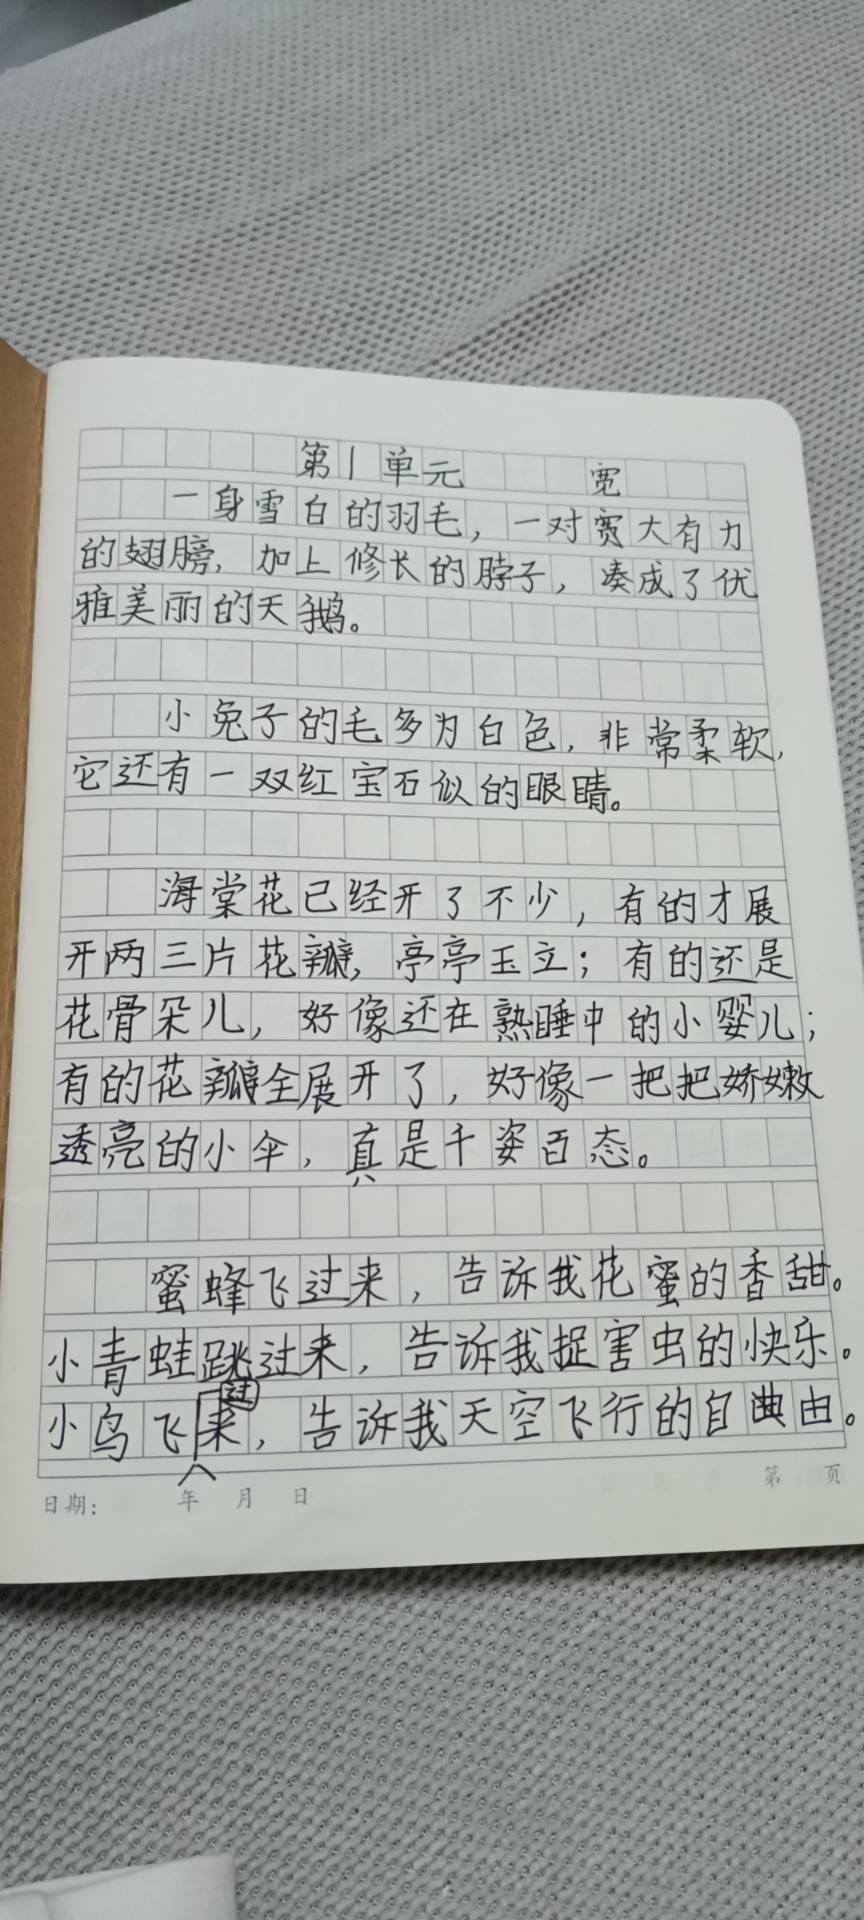 第1单元 宽
一身雪白的羽毛，一对宽大有力
的翅膀，加上修长的脖子，凑成了优
雅美丽的天鹅。
小兔子的毛多为白色，非常柔软，
它还有一双红宝石似的眼睛。
海棠花已经开了不少，有的才展
开两三片花瓣，亭亭玉立；有的还是
花骨朵儿，好像还在熟睡中的小婴儿；
有的花瓣全展开了，好像一把把娇嫩
透亮的小伞，真是千姿百态。
蜜蜂飞过来，告诉我花蜜的香甜。
小青蛙跳过来，告诉我捉害虫的快乐。
过
小鸟飞来，告诉我天空飞行的自曲由。
日期： 年 月 日 第 页